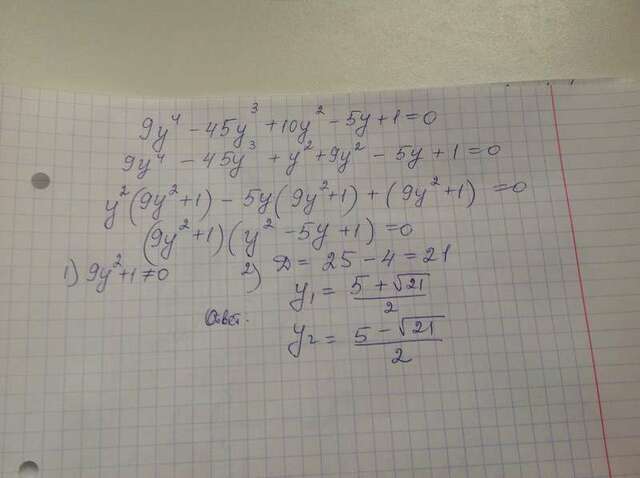 9y⁴ - 45y³ + 10y² - 5y + 1 = 0
9y⁴ - 45y³ + y² + 9y² - 5y + 1 = 0
y²(9y² + 1) - 5y(9y² + 1) + (9y² + 1) = 0
(9y² + 1)(y² - 5y + 1) = 0
1) 9y² + 1 ≠ 0
2) D = 25 - 4 = 21
y₁ = (5 + √21)/2
Ответ.
y₂ = (5 - √21)/2